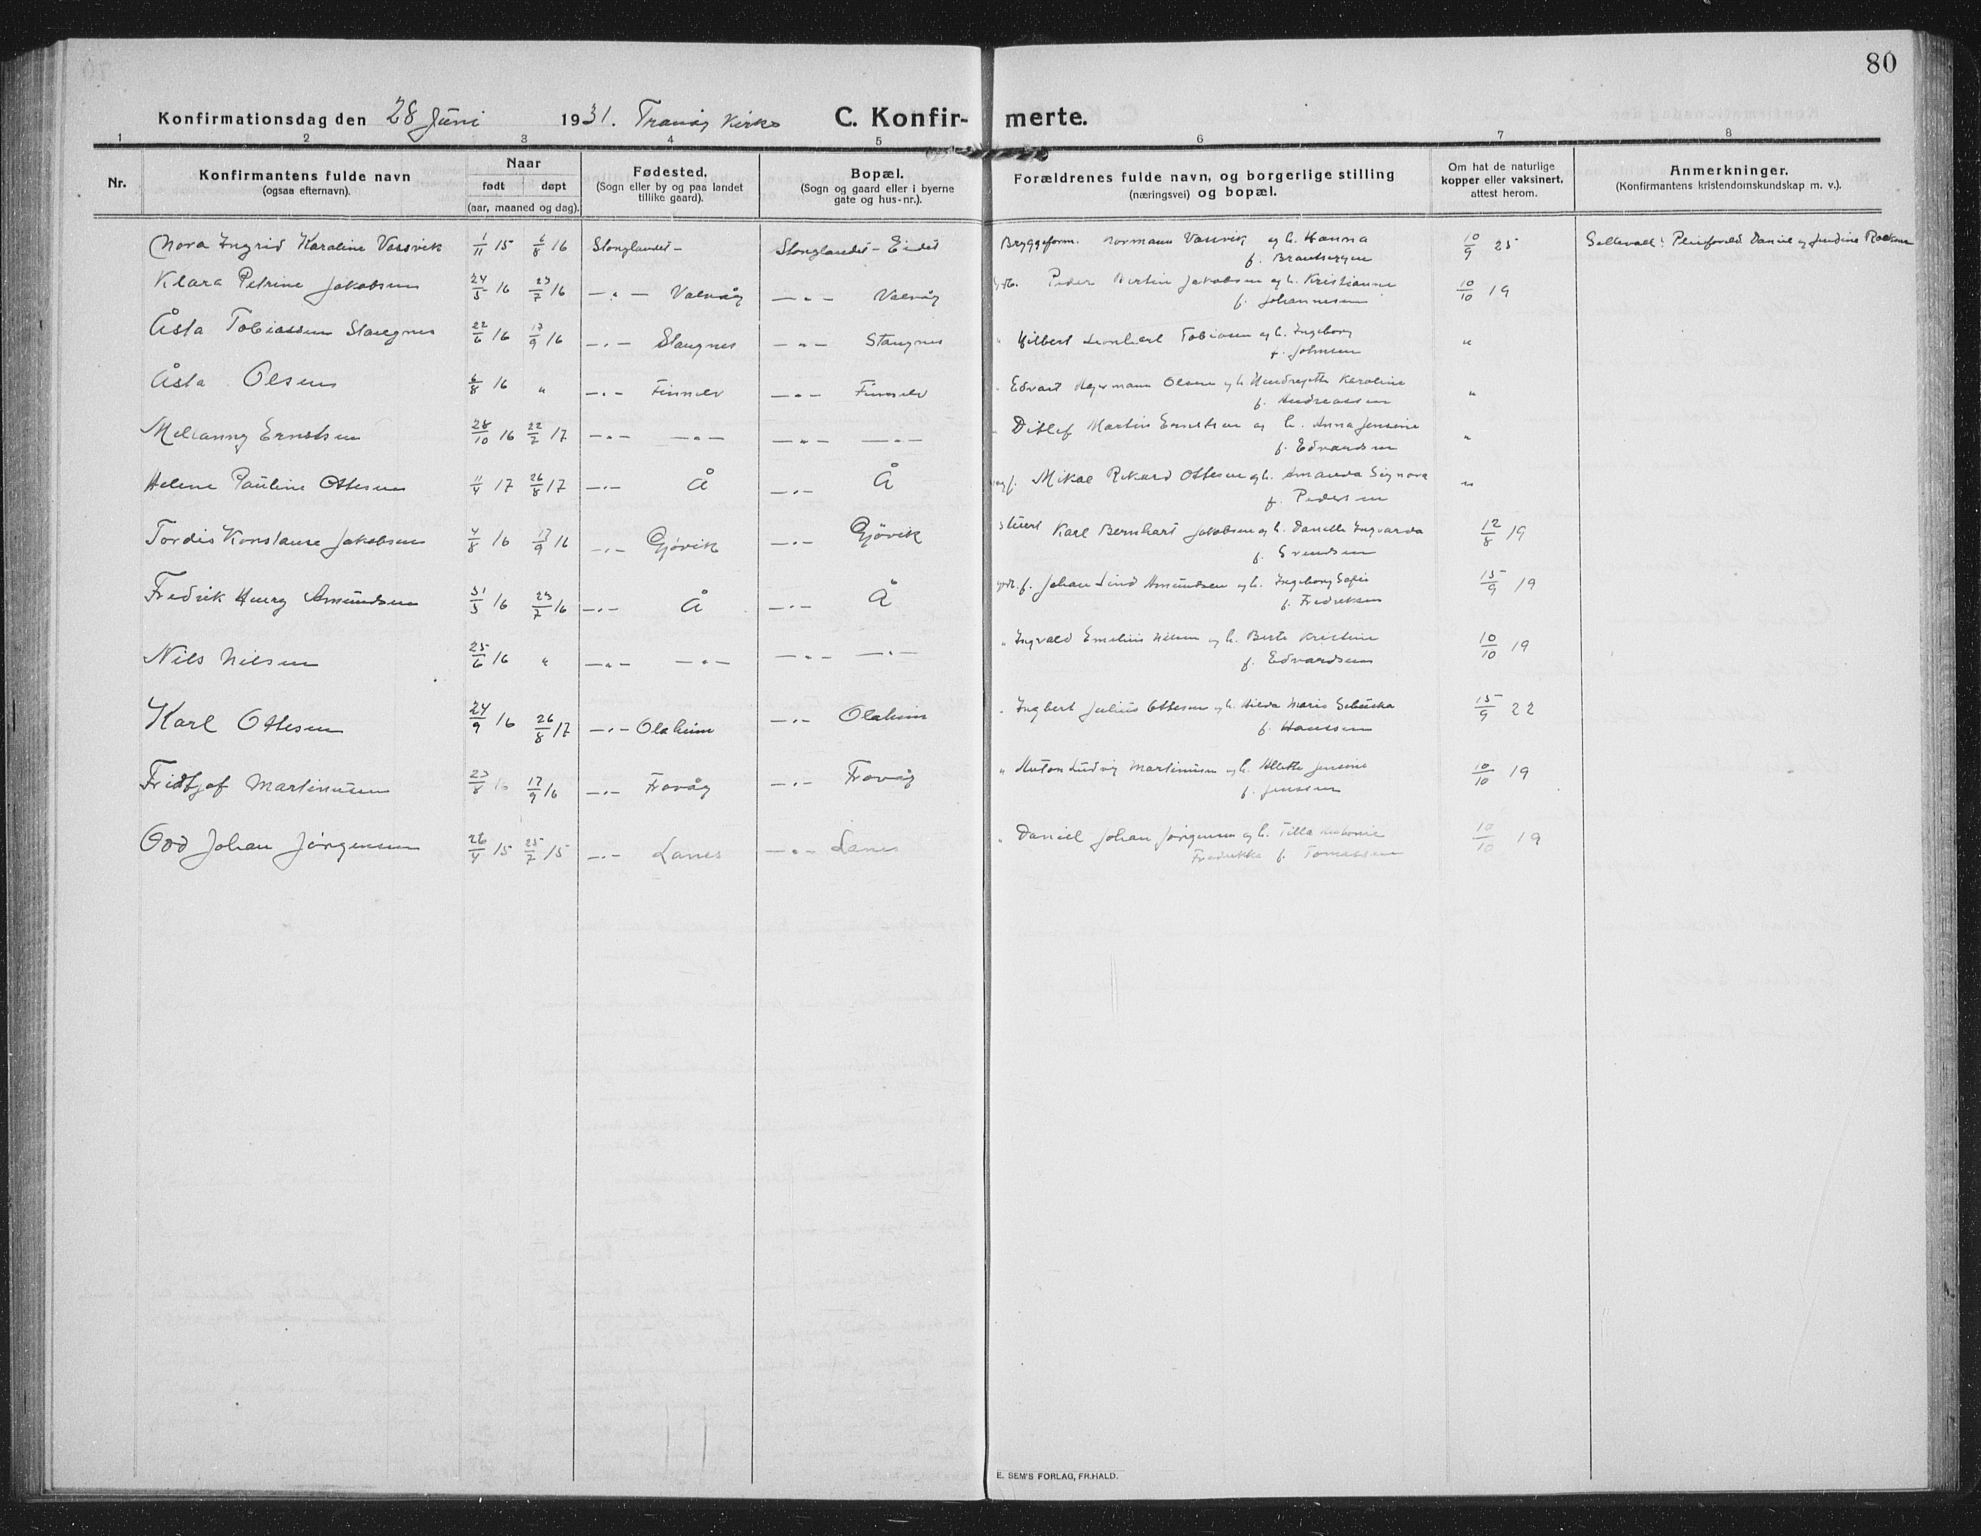 80
Konfirmationsdag den 28 Juni 1931. Tranøy Kirke C. Konfir- merte.
1 2 3 4 5 6 7 8
Nr. Konfirmantens fulde navn (ogsaa efternavn). Naar født døpt (aar, maaned og dag). Fødested. (Sogn eller by og paa landet tillike gaard). Bopæl. (Sogn og gaard eller i byerne gate og hus-nr.). Forældrenes fulde navn, og borgerlige stilling (næringsvei) og bopæl. Om hat de naturlige kopper eller vaksinert, attest herom. Anmerkninger. (Konfirmantens kristendomskundskap m. v.).
Nora Ingrid Karoline Vassvik 1/11 15 6/8 16 Stonglandet - Stonglandet - Eidet Bryggeform. Normann Vassvik og h. Hanna 10/9 25 Daniel og
f.
Klara Petrine Jakobsen 24/5 16 23/7 16 — " — Valvåg — " — Valvåg Peder Martin Jakobsen og h. Kristianne 10/10 19
f. Johannesen
Åsta Tobiassen Stangnes 22/6 16 17/9 16 — " — Stangnes — " — Stangnes " Hilbert Leonhart Tobiasen og h. Ingeborg "
f. Johnsen
Åsta Olsen 6/8 16 " — " — Finnelv — " — Finnelv " Edvart Olsen og h. Karoline "
f. Andreassen
Melianny Ernstsen 28/10 16 22/7 17 — " — — " — — " — — " — " Ditlef Martin Ernstsen og h. Anna Jensine "
f. Edvardsen
Helene Pauline Ottesen 11/4 17 26/8 17 — " — Å — " — Å Mikal Rikard Ottesen og h. Amanda Signora "
f. Pedersen
Tordis Konstanse Jakobsen 4/8 16 17/9 16 — " — Gjøvik — " — Gjøvik Karl Bernhart Jakobsen og h. Danelle Ingvarda 12/8 19
f. Svendsen
Fredrik Henry Amundsen 31/5 16 23/7 16 — " — Å — " — Å Johan Lind Amundsen og h. Ingeborg Sofie 15/9 19
f. Fredriksen
Nils Nilsen 25/6 16 " — " — — " — — " — — " — " Ingvald Emelius Nilsen og h. Berte Kristine 10/10 19
f. Edvardsen
Karl Ottesen 24/9 16 26/8 17 — " — Olaheim — " — Olaheim " Ingbert Julius Ottesen og h. Hilda Marie 15/9 22
f. Hanssen
Fridtjof Martinusen 23/8 16 17/9 16 — " — Frovåg — " — Frovåg " Anton Ludvig Martinusen og h. Alette Jensine 10/10 19
f. Jenssen
Odd Johan Jørgensen 26/4 15 25/7 15 — " — Lanes — " — Lanes " Daniel Johan Jørgensen og h. Tilla 10/10 19
Fredrikke f. Tomassen
E. SEM'S FORLAG, FR.HALD.